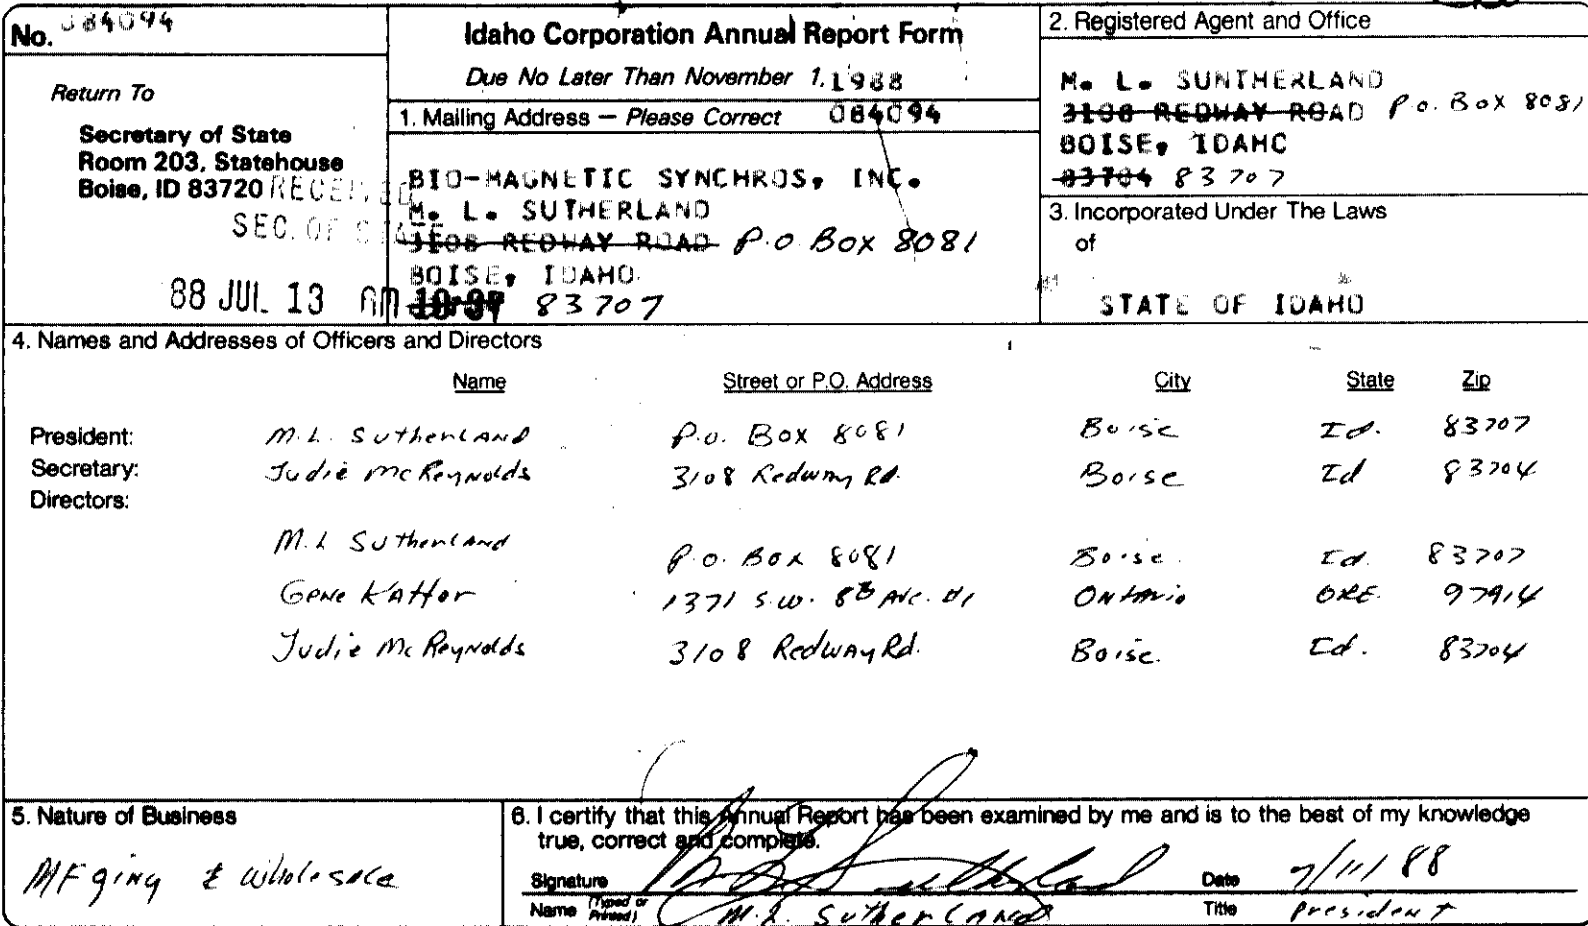 No. 084094
Return To
Secretary of State
Room 203, Statehouse
Boise, ID 83720
RECEIVED
SEC. OF STATE
88 JUL 13 AM
Idaho Corporation Annual Report Form
Due No Later Than November 1, 1988
1. Mailing Address — Please Correct 084094
BIO-MAGNETIC SYNCHROS, INC.
M. L. SUTHERLAND
3108 REDWAY ROAD P.O Box 8081
BOISE, IDAHO
83707
2. Registered Agent and Office
M. L. SUNTHERLAND
3108 REDWAY ROAD P.O. Box 8081
BOISE, IDAHO
83704 83707
3. Incorporated Under The Laws
of
STATE OF IDAHO
4. Names and Addresses of Officers and Directors
Name Street or P.O. Address City State Zip
President: M.L. Sutherland P.O. Box 8081 Boise Id. 83707
Secretary: Judie McReynolds 3108 Redway Rd. Boise Id 83704
Directors:
M.L Sutherland P.O. Box 8081 Boise. Id. 83707
Gene Kattor 1371 S.W. 8th Ave. #1 Ontario ORE. 97914
Judie McReynolds 3108 Redway Rd. Boise. Id. 83704
5. Nature of Business
MFging & wholesale
6. I certify that this Annual Report has been examined by me and is to the best of my knowledge
true, correct and complete.
Signature M L Sutherland Date 7/11/88
Name (Typed or Printed) M.L. Sutherland Title President